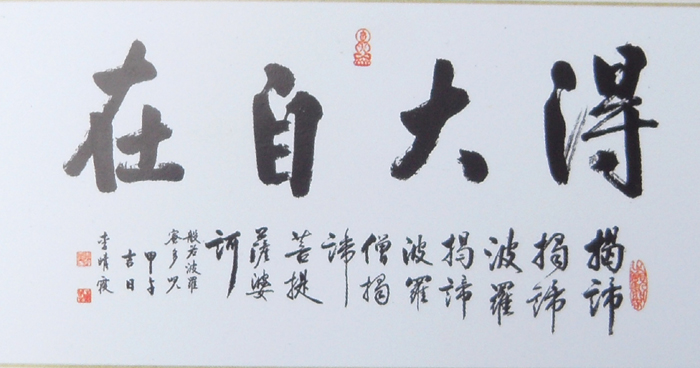 得大自在
揭諦
揭諦
波羅
揭諦
波羅
僧揭
諦
菩提
薩婆
訶
般若波羅
蜜多咒
甲午
吉日
李晴霞